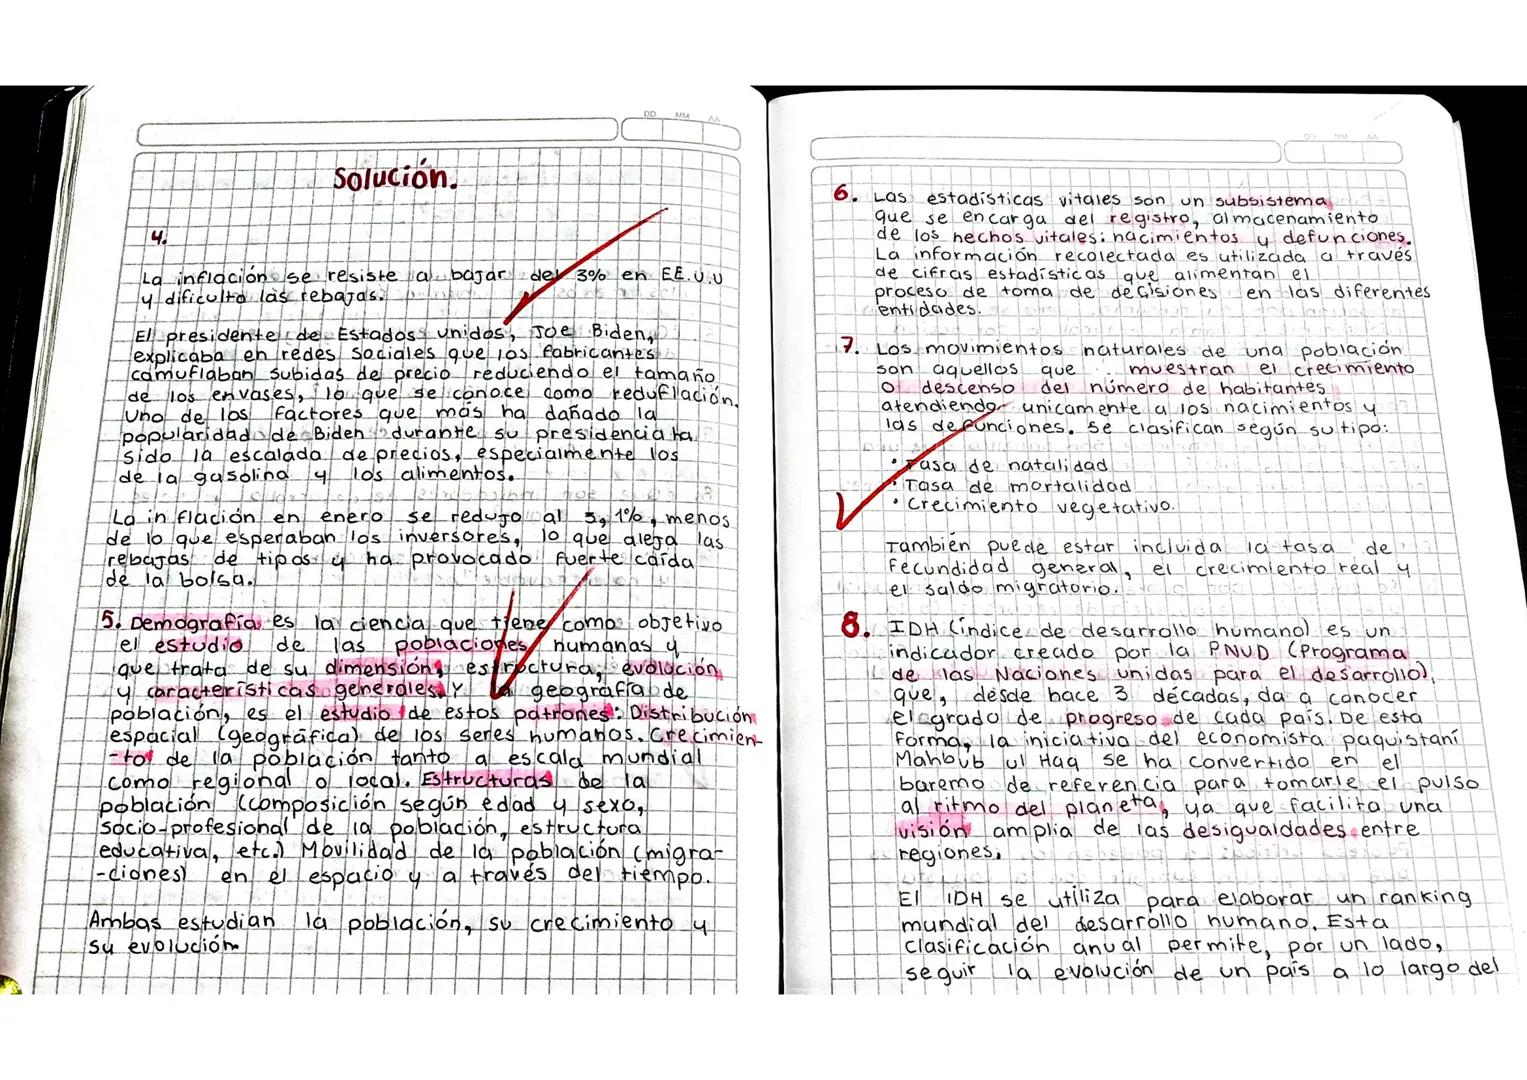 DD MM AA
Solución.
4.
La inflación se resiste a bajar del 3% en EE.U.U
y dificulta las rebajas.
El presidente de Estados unidos, Joe Biden,
explicaba en redes sociales que los fabricantes
camuflaban subidas de precio reduciendo el tamaño
de los envases, lo que se conoce como reduflación.
Uno de los factores que más ha dañado la
popularidad de Biden durante su presidencia ha
sido la escalada de precios, especialmente los
de la gasolina y los alimentos.
La inflación en enero se redujo al 3,1%, menos
de lo que esperaban los inversores, lo que aleja las
rebajas de tipos y ha provocado fuerte caída
de la bolsa.
5. Demografía es la ciencia que tiene como objetivo
el estudio de las poblaciones humanas y
que trata de su dimensión, estructura, evolución
y características generales y la geografía de
población, es el estudio de estos patrones: Distribución
espacial (geográfica) de los seres humanos. Crecimien-
-to de la población tanto a escala mundial
como regional o local. Estructuras de la
población (composición según edad y sexo,
socio-profesional de la población, estructura
educativa, etc.) Movilidad de la población (migra-
-ciones) en el espacio y a través del tiempo.
Ambas estudian la población, su crecimiento y
su evolución
DD MM AA
6. Las estadísticas vitales son un subsistema
que se encarga del registro, almacenamiento
de los hechos vitales: nacimientos y defunciones.
La información recolectada es utilizada a través
de cifras estadísticas que alimentan el
proceso de toma de decisiones en las diferentes
entidades.
7. Los movimientos naturales de una población
son aquellos que muestran el crecimiento
o descenso del número de habitantes
atendiendo unicamente a los nacimientos y
las defunciones. se clasifican según su tipo:
• Tasa de natalidad
• Tasa de mortalidad
• Crecimiento vegetativo.
También puede estar incluida la tasa de
fecundidad general, el crecimiento real y
el saldo migratorio.
8. IDH (índice de desarrollo humano) es un
indicador creado por la PNUD (Programa
de las Naciones unidas para el desarrollo),
que, desde hace 3 décadas, da a conocer
el grado de progreso de cada país. De esta
forma, la iniciativa del economista paquistaní
Mahbub ul Haq se ha convertido en el
baremo de referencia para tomarle el pulso
al ritmo del planeta, ya que facilita una
visión amplia de las desigualdades entre
regiones.
El IDH se utiliza para elaborar un ranking
mundial del desarrollo humano. Esta
clasificación anual permite, por un lado,
seguir la evolución de un país a lo largo del